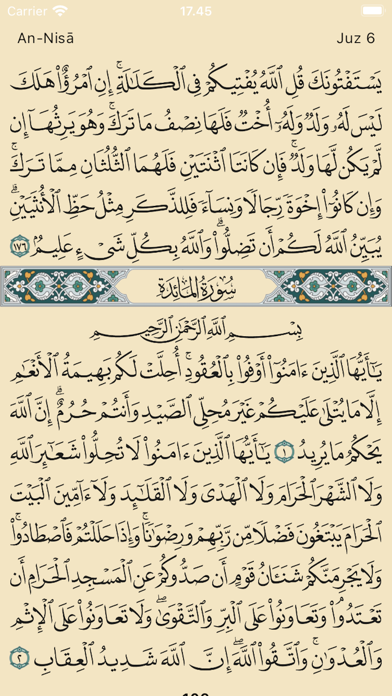 Carrier 17.45
An-Nisā Juz 6
يَسْتَفْتُونَكَ قُلِ ٱللَّهُ يُفْتِيكُمْ فِى ٱلْكَلَٰلَةِ ۚ إِنِ ٱمْرُؤٌا۟ هَلَكَ
لَيْسَ لَهُۥ وَلَدٌ وَلَهُۥٓ أُخْتٌ فَلَهَا نِصْفُ مَا تَرَكَ ۚ وَهُوَ يَرِثُهَآ إِن
لَّمْ يَكُن لَّهَا وَلَدٌ ۚ فَإِن كَانَتَا ٱثْنَتَيْنِ فَلَهُمَا ٱلثُّلُثَانِ مِمَّا تَرَكَ ۚ
وَإِن كَانُوٓا۟ إِخْوَةً رِّجَالًا وَنِسَآءً فَلِلذَّكَرِ مِثْلُ حَظِّ ٱلْأُنثَيَيْنِ ۗ
يُبَيِّنُ ٱللَّهُ لَكُمْ أَن تَضِلُّوا۟ ۗ وَٱللَّهُ بِكُلِّ شَىْءٍ عَلِيمٌۢ ١٧٦
سُورَةُ المَائِدَةِ
بِسْمِ ٱللَّهِ ٱلرَّحْمَٰنِ ٱلرَّحِيمِ
يَٰٓأَيُّهَا ٱلَّذِينَ ءَامَنُوٓا۟ أَوْفُوا۟ بِٱلْعُقُودِ ۚ أُحِلَّتْ لَكُم بَهِيمَةُ ٱلْأَنْعَٰمِ
إِلَّا مَا يُتْلَىٰ عَلَيْكُمْ غَيْرَ مُحِلِّى ٱلصَّيْدِ وَأَنتُمْ حُرُمٌ ۗ إِنَّ ٱللَّهَ
يَحْكُمُ مَا يُرِيدُ ١ يَٰٓأَيُّهَا ٱلَّذِينَ ءَامَنُوا۟ لَا تُحِلُّوا۟ شَعَٰٓئِرَ ٱللَّهِ
وَلَا ٱلشَّهْرَ ٱلْحَرَامَ وَلَا ٱلْهَدْىَ وَلَا ٱلْقَلَٰٓئِدَ وَلَآ ءَآمِّينَ ٱلْبَيْتَ
ٱلْحَرَامَ يَبْتَغُونَ فَضْلًا مِّن رَّبِّهِمْ وَرِضْوَٰنًا ۚ وَإِذَا حَلَلْتُمْ فَٱصْطَادُوا۟ ۚ
وَلَا يَجْرِمَنَّكُمْ شَنَـَٔانُ قَوْمٍ أَن صَدُّوكُمْ عَنِ ٱلْمَسْجِدِ ٱلْحَرَامِ أَن
تَعْتَدُوا۟ ۘ وَتَعَاوَنُوا۟ عَلَى ٱلْبِرِّ وَٱلتَّقْوَىٰ ۖ وَلَا تَعَاوَنُوا۟ عَلَى ٱلْإِثْمِ
وَٱلْعُدْوَٰنِ ۚ وَٱتَّقُوا۟ ٱللَّهَ ۖ إِنَّ ٱللَّهَ شَدِيدُ ٱلْعِقَابِ ٢